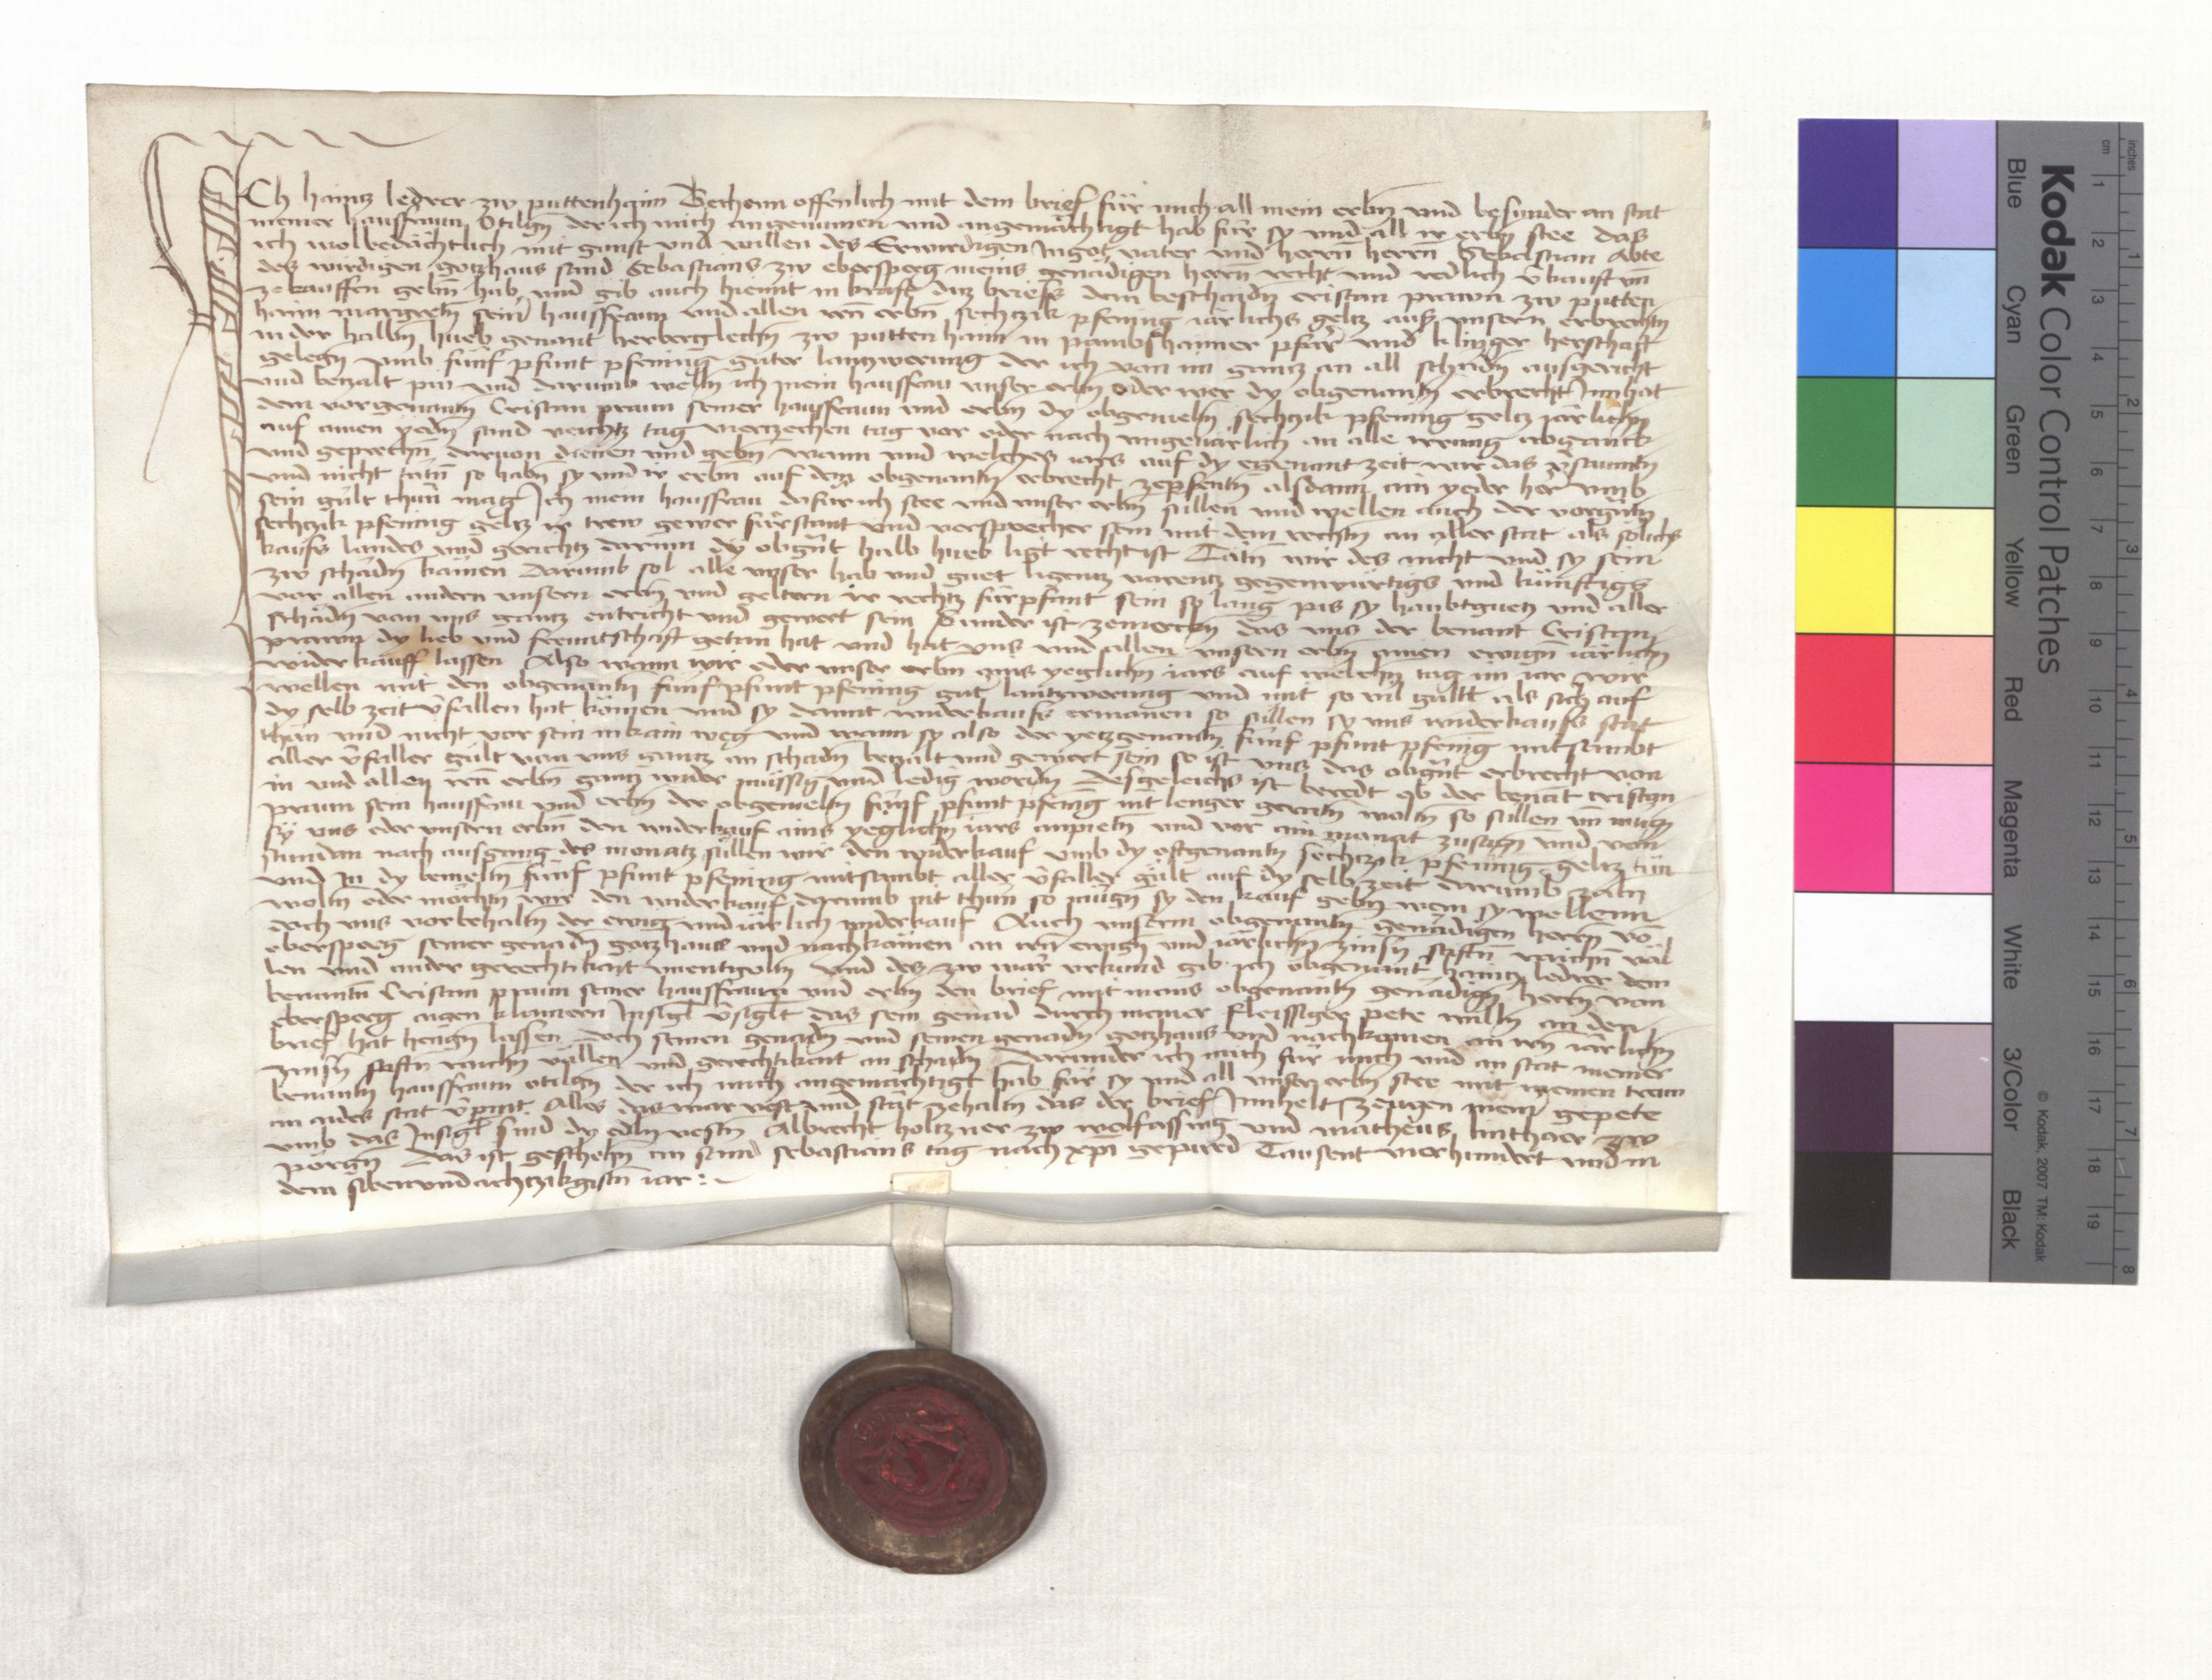 Ich haintz ledrer zw puttenhaim Bechenn offenlich mit dem brief für mich all mein erbn und besunder an stat
meiner hausfraun Otilgn der ich mich angenumen und angemächtigt hab für sy und all ir erbn stee das
ich wolbedächtlich mit gunst und willen des Erwirdigen Ingot vater und herrn herrn Sebastian Abte
des wirdigen gotzhaus sand Sebastians zw ebersperg meins genädigen herrn recht und redlich v̄kauft un̄
zekauffen gebn̄ hab und gib auch hiemit in kraft ditz briefs dem beschaidn̄ cristan prawn zw putten
haim margretn̄ sein̄ hausfraun und allen irn̄ erbn̄ sechtzik pfening iärlichs geltz aus unsern erbrechtn
in der halbn̄ hueb genant herberglechn zw puttenhaim in pambshaimer pfarr und klinger herschaft
gelegn̄ umb fünf pfunt pfening guter lantzwerung der ich von im gantz an all schädn̄ ausgericht
und betzalt pin und darumb welln̄ ich mein hausfrau unser erbn oder wer dy obgenantn̄ erbrecht Innhat
dem vorgenantn̄ Cristan praun seiner hausfraun und erbn̄ dy obgemeltn̄ sechtzik pfening geltz järlichn̄
auf ainen yedn̄ sand veichtz tag viertzechen tag vor oder nach ungevärlich an alle irrung abganck
und geprechn̄ darvon dienen und gebn̄ Wann und welches iars auf dy egenant zeit wir das v̄saumtn̄
und nicht tätn̄ so habn̄ sy und ir erbn̄ auf dem obgenantn̄ erbrecht zepfentn̄ alsdann ain yeder her umb
sein gült thun mag Ich mein hausfrau dafür ich stee und unser erbn̄ sullen und wellen auch der vorgn̄tn̄
sechtzik pfening geltz ir trew gewer fürstant und versprecher sein mit dem rechtn̄ an aller stat als sölichs
kaufs landes und gerichtz darinn dy obgn̄t halb hueb ligt recht ist Tätn̄ wir des nicht und sy sein
zw schädn̄ kämen darumb sol alle unser hab und guet ligentz varentz gegenwürtigs und künftigs
vor allen andern unsern erbn̄ und geltern ir rechtz fürpfant sein so lang pis sy haubtguetz und aller
schädn̄ von uns gantz entricht und gewert sein Sunder ist zemerckn̄ das uns der benant Cristan
prawn dy lieb und freuntschaft getan hat und hat uns und allen unsern erbn̄ ainen ewign̄ iärlichn̄
widerkauff lassen Also wann wir oder unser erbn̄ ains yeglichn̄ iars auf welichn̄ tag im iar wir
wellen mit den obgenantn̄ fünf pfunt pfening gut lantzwerung und mit so vil gültt als sich auf
dy selb zeit v̄fallen hat kömen und sy damit widerkaufs ermanen so sullen sy uns widerkaufs stat
thun und nicht vor sein in kain weg und wann sy also der yetzgenantn̄ fünf pfunt pfenīg mitsambt
aller v̄faller gült von uns gantz an schadn̄ betzalt und gewert sein so ist uns das obgn̄t erbrecht von
in und allen irn̄ erbn̄ gantz wider müssig und ledig wordn̄ Desgeleichs ist beredt ob der benāt cristan
praun sein hausfrau und erbn̄ der obgemeltn̄ fünf pfunt pfenīg nit lenger geratn̄ woltn̄ so sullen un̄ mugn̄
sy uns oder unsern erbn̄ den widerkauf ains yeglichn̄ iars anpietn̄ und vor ain monat zusagn̄ und von
stundan nach ausgang des monatz sullen wir den widerkauf umb dy oftgenantn̄ sechtzik pfening geltz tun
und In dy bemeltn̄ fünf pfunt pfening mitsambt aller v̄faller gült auf dy selb zeit darumb zaln̄
woltn̄ oder möchtn̄ wir den widerkauf darumb nit thun so mügn̄ sy den kauf gebn̄ wem sy wellenn
doch uns vorbehaltn̄ der ewig und iärlich widerkauf Auch unserm obgenantn̄ genädigen herrn vō
ebersperg seiner genadn̄ gotzhaus und nachkömen an irn̄ ewign̄ und iärlichn̄ zinsn̄ stiftn̄ raichn̄ väl
len und ander gerechtikait unentgoltn̄ und des zw war urkund gib ich obgenant haintz ledrer dem
benantn̄ Cristan praun seiner hausfraun und erbn̄ den brief mit mains obgenantn̄ genädign̄ herrn von
ebersperg aigen klainern Insigl v̄siglt das sein genad durch meiner fleissiger pete willn̄ an den
brief hat hengn̄ lassen doch seinen genadn̄ und seinen genadn̄ gotzhaus und nachkomen an irn̄ iärlichn̄
zinsn̄ stiftn̄ raichn̄ vällen und gerechtikait an schadn̄ Darunder ich mich für mich und an stat meiner
benantn̄ hausfraun otilgn̄ der ich mich angemächtigt hab für sy und all unser erbn̄ stee mit meinen treun
an aides stat v̄pint Alles das war vest und stät zehaltn̄ das der brief Innhelt Zeugen mein̄ gepete
umb das Insigl sind dy edln̄ vestn̄ Albrecht holtzner zw wolfassing und matheus linthaer zw
pörgn̄ Das ist geschehn̄ an sand sebastians tag nach xpī gepurd Tausent vierhundert und in
dem sibenundachtzikgistn̄ iar :~
Kodak Color Control Patches
Blue Cyan Green Yellow Red Magenta White 3/Color Black
© Kodak, 2007 TM: Kodak
cm 1 2 3 4 5 6 7 8 9 10 11 12 13 14 15 16 17 18 19
inches 1 2 3 4 5 6 7 8